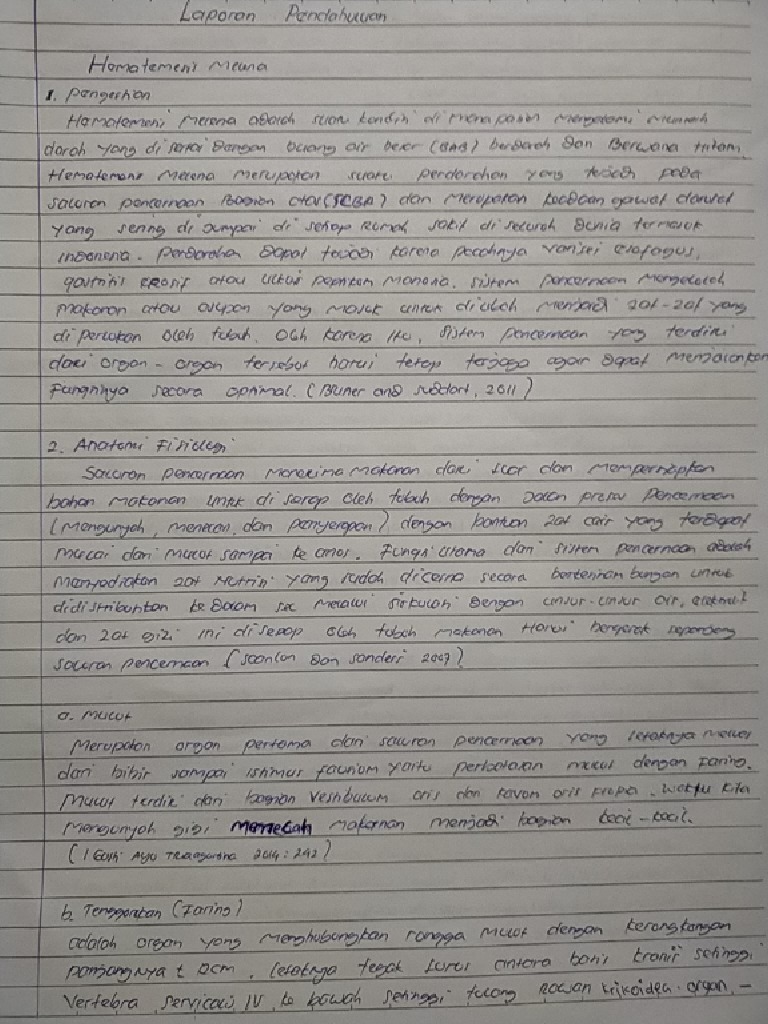 Laporan Pendahuluan
Hematemesis Melena
1. Pengertian
Hematemesis Melena adalah suatu kondisi di mana pasien mengalami muntah
darah yang di sertai dengan buang air besar (BAB) berdarah dan Berwarna hitam.
Hematemesis Melena merupakan suatu perdarahan yang terjadi pada
saluran pencernaan Bagian atas (SCBA) dan merupakan keadaan gawat darurat
yang sering di jumpai di setiap Rumah sakit di seluruh dunia termasuk
indonesia. Perdarahan dapat terjadi karena pecahnya varises esofagus,
gastritis erosif atau ulkus peptikum. sistem pencernaan mengolah
makanan atau asupan yang masuk untuk diubah menjadi zat-zat yang
di perlukan oleh tubuh. Oleh karena itu, sistem pencernaan yang terdiri
dari organ-organ tersebut harus tetap terjaga agar dapat menjalankan
fungsinya secara optimal. (Bruner and suddart, 2011)
2. Anatomi Fisiologi
Saluran pencernaan menerima makanan dari luar dan mempersiapkan
bahan makanan untuk di serap oleh tubuh dengan Jalan proses Pencernaan
(Mengunyah, menelan, dan penyerapan) dengan bantuan zat cair yang terdapat
mulai dari mulut sampai ke anus. Fungsi utama dari sistem pencernaan adalah
menyediakan zat Nutrisi yang sudah dicerna secara berkesinambungan untuk
didistribusikan ke dalam sel melalui sirkulasi dengan unsur-unsur air, elektrolit
dan zat gizi ini di serap oleh tubuh makanan Harus bergerak sepanjang
saluran pencernaan (scanlon dan sanders 2007)
a. mulut
Merupakan organ pertama dari saluran pencernaan yang letaknya
dari bibir sampai isthmus faucium yaitu perbatasan mulut dengan Faring.
Mulut terdiri dari bagian Vestibulum oris dan kavum oris propia. waktu kita
mengunyah gigi memecah makanan menjadi bagian kecil-kecil.
Ayu 2014: 242)
b. Tenggorokan (Faring)
adalah organ yang menghubungkan rongga mulut dengan kerongkongan
panjangnya ± cm. letaknya tegak lurus antara basis kranii setinggi
Vertebra servicalis IV, ke bawah setinggi tulang Rawan krikoidea. organ -